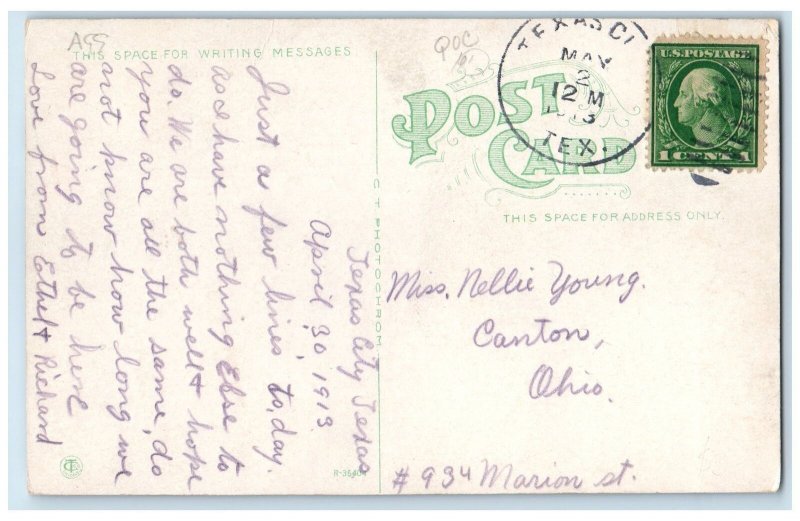 A99
POC
THIS SPACE FOR WRITING MESSAGES
POST CARD
THIS SPACE FOR ADDRESS ONLY.
TEXAS CI
MAY
2
12 M
TEX.
U.S. POSTAGE
1 CENT 1
Texas City Texas
April, 30, 1913.
Just a few lines to, day.
as I have nothing Else to
do. We are both well & hope
you are all the same, do
not know how long we
are going to be here
Love from Ethel & Richard
C T PHOTOCHROM
Miss. Nellie Young.
Canton,
Ohio.
# 934 Marion st.